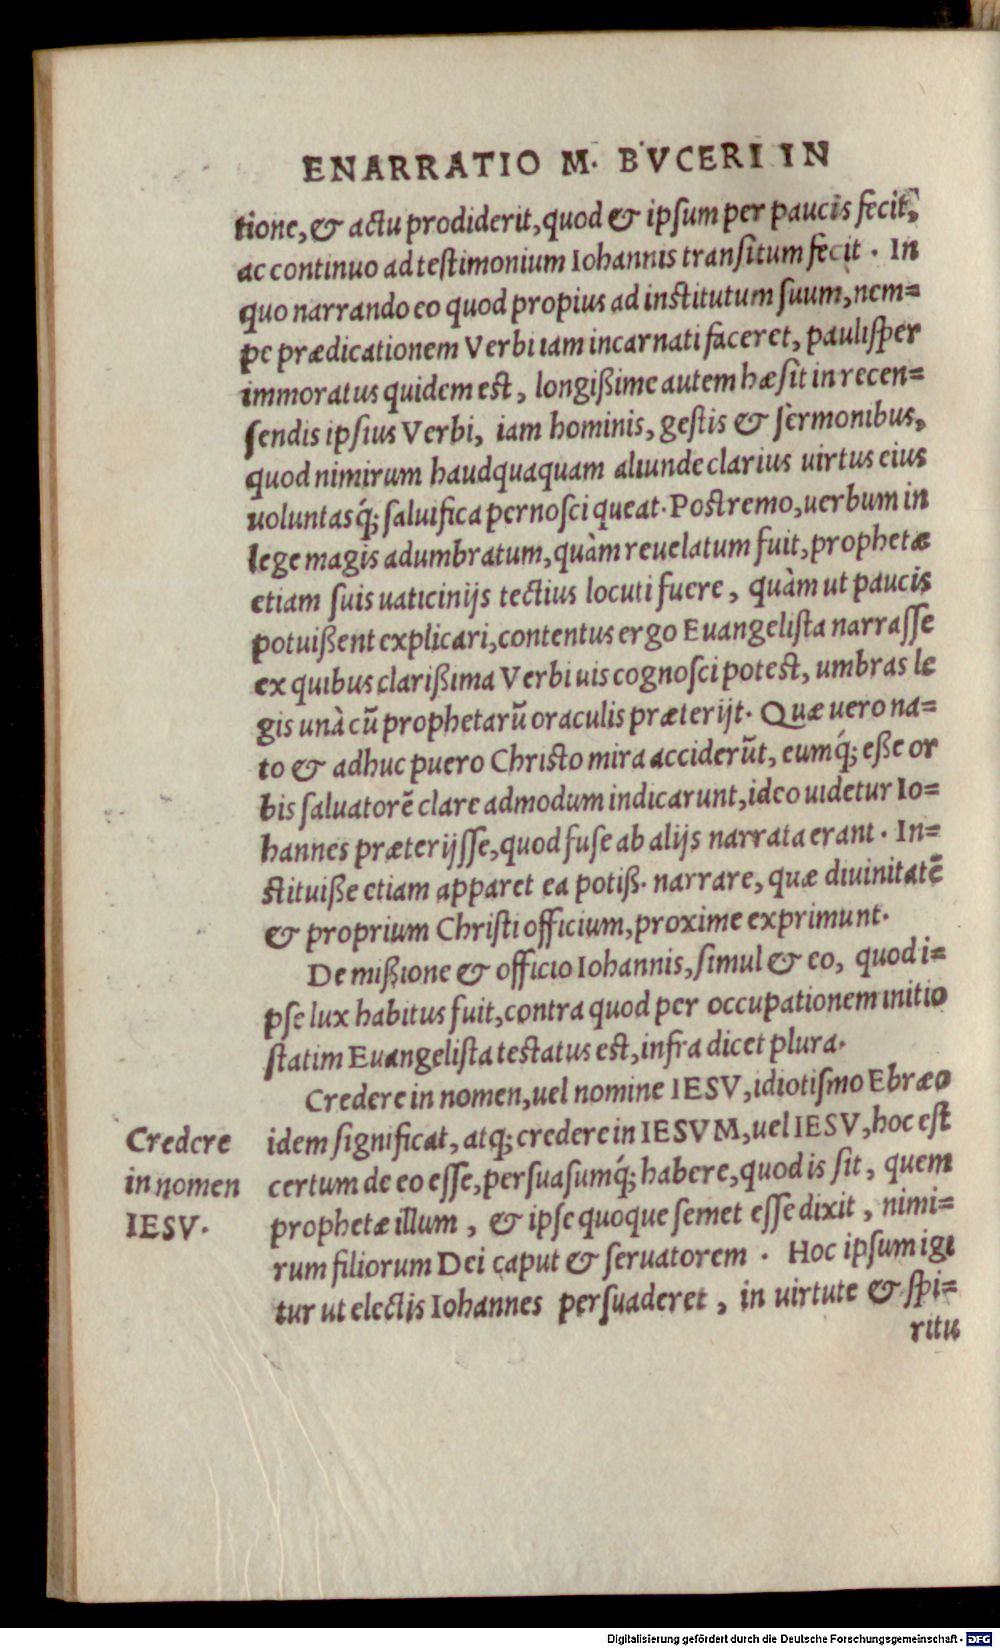 ENARRATIO M. BVCERI IN
tione, & actu prodiderit, quod & ipſum per paucis fecit,
ac continuo ad teſtimonium Iohannis tranſitum fecit. In
quo narrando eo quod propius ad inſtitutum ſuum, nem=
pe prædicationem Verbi iam incarnati faceret, pauliſper
immoratus quidem eſt, longißime autem hæſit in recen=
ſendis ipſius Verbi, iam hominis, geſtis & ſermonibus,
quod nimirum haudquaquam aliunde clarius uirtus eius
uoluntasq́; ſaluifica pernoſci queat. Poſtremo, uerbum in
lege magis adumbratum, quàm reuelatum fuit, prophetæ
etiam ſuis uaticinijs tectius locuti fuere, quàm ut paucis
potuißent explicari, contentus ergo Euangeliſta narraſſe
ex quibus clarißima Verbi uis cognoſci poteſt, umbras le
gis unà cũ prophetarũ oraculis præterijt. Quæ uero na=
to & adhuc puero Chriſto mira acciderũt, eumq́; eße or
bis ſaluatorẽ clare admodum indicarunt, ideo uidetur Io=
hannes præterijſſe, quod fuſe ab alijs narrata erant. In=
ſtituiße etiam apparet ea potiß. narrare, quæ diuinitatẽ
& proprium Chriſti officium, proxime exprimunt.
De mißione & officio Iohannis, ſimul & eo, quod i=
pſe lux habitus fuit, contra quod per occupationem initio
ſtatim Euangeliſta teſtatus eſt, infra dicet plura.
Credere in nomen, uel nomine IESV, idiotiſmo Ebræo
idem ſignificat, atq; credere in IESVM, uel IESV, hoc eſt
certum de eo eſſe, perſuaſumq́; habere, quod is ſit, quem
prophetæ illum, & ipſe quoque ſemet eſſe dixit, nimi=
rum filiorum Dei caput & ſeruatorem. Hoc ipſum igi
tur ut electis Iohannes perſuaderet, in uirtute & ſpi=
ritu
Credere
in nomen
IESV.
Digitalisierung gefördert durch die Deutsche Forschungsgemeinschaft - DFG